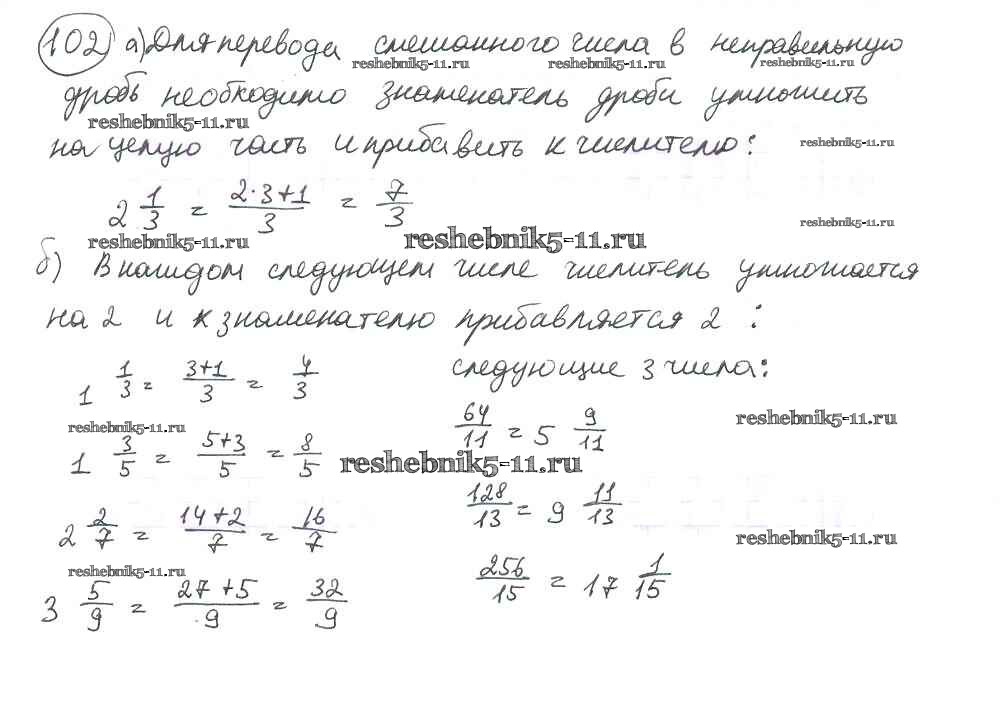 102 а) Для перевода смешанного числа в неправильную
reshebnik5-11.ru reshebnik5-11.ru reshebnik5-11.ru
дробь необходимо знаменатель дроби умножить
reshebnik5-11.ru
на целую часть и прибавить к числителю:
reshebnik5-11.ru
2 1/3 = (2·3+1)/3 = 7/3
reshebnik5-11.ru
reshebnik5-11.ru reshebnik5-11.ru
б) В каждом следующем числе числитель умножается
на 2 и к знаменателю прибавляется 2 :
1 1/3 = (3+1)/3 = 4/3
следующие 3 числа:
64/11 = 5 9/11
reshebnik5-11.ru reshebnik5-11.ru
1 3/5 = (5+3)/5 = 8/5
reshebnik5-11.ru
128/13 = 9 11/13
2 2/7 = (14+2)/7 = 16/7
reshebnik5-11.ru
reshebnik5-11.ru
256/15 = 17 1/15
3 5/9 = (27+5)/9 = 32/9